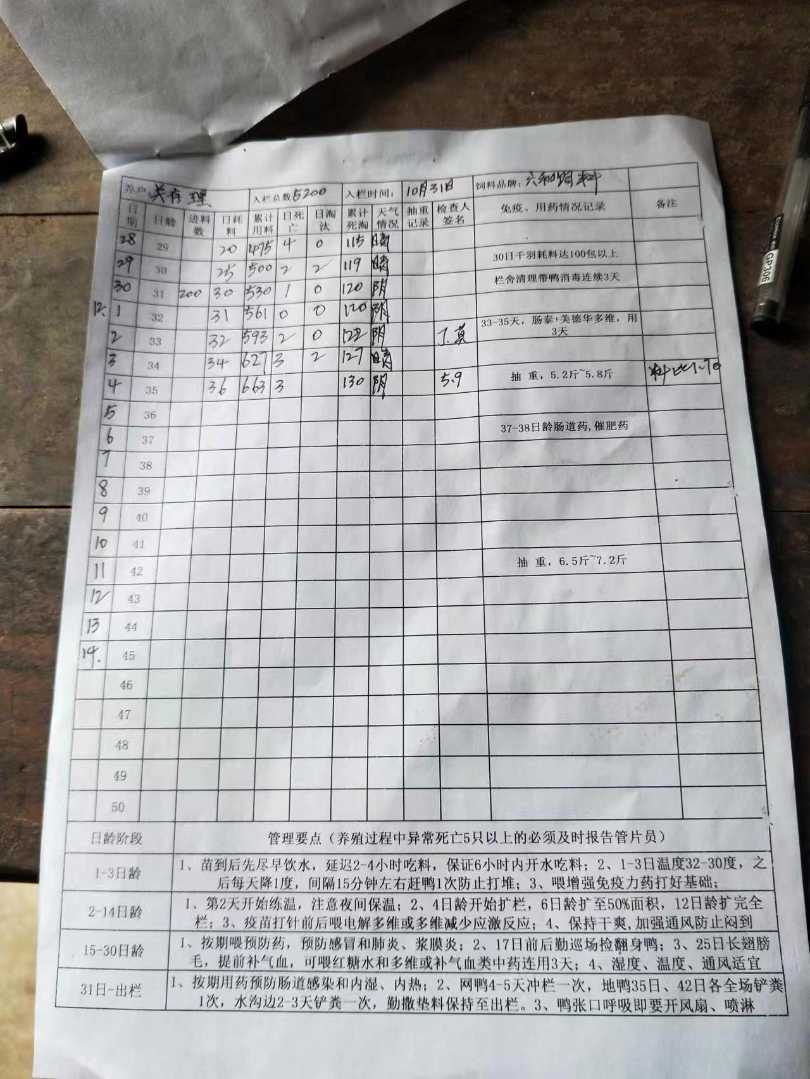 养户 关有理 入栏总数 5200 入栏时间: 10月31日 饲料品牌: 六和饲料
日期 日龄 进料数 日耗料 累计用料 日死亡 日淘汰 累计死淘 天气情况 抽重记录 检查人签名 免疫、用药情况记录 备注
28 29 20 475 4 0 115 晴
29 30 25 500 2 2 119 晴 30日千羽耗料达100包以上
30 31 200 30 530 1 0 120 阴 栏舍清理带鸭消毒连续3天
12. 1 32 31 561 0 0 120 阴
2 33 32 593 2 0 122 阴 33-35天，肠泰+美德华多维，用3天
3 34 34 627 3 2 127 晴
4 35 36 663 3 130 阴 5.9 抽 重，5.2斤~5.8斤 料比1.70
5 36
6 37 37-38日龄肠道药,催肥药
7 38
8 39
9 40
10 41
11 42 抽 重，6.5斤~7.2斤
12 43
13 44
14. 45
46
47
48
49
50
日龄阶段 管理要点（养殖过程中异常死亡5只以上的必须及时报告管片员）
1-3日龄 1、苗到后先尽早饮水，延迟2-4小时吃料，保证6小时内开水吃料；2、1-3日温度32-30度，之
后每天降1度，间隔15分钟左右赶鸭1次防止打堆；3、喂增强免疫力药打好基础；
2-14日龄 1、第2天开始练温，注意夜间保温；2、4日龄开始扩栏，6日龄扩至50%面积，12日龄扩完全
栏；3、疫苗打针前后喂电解多维或多维减少应激反应；4、保持干爽,加强通风防止闷到
15-30日龄 1、按期喂预防药，预防感冒和肺炎、浆膜炎；2、17日前后勤巡场捡翻身鸭；3、25日长翅膀
毛，提前补气血，可喂红糖水和多维或补气血类中药连用3天；4、湿度、温度、通风适宜
31日-出栏 1、按期用药预防肠道感染和内湿、内热；2、网鸭4-5天冲栏一次，地鸭35日、42日各全场铲粪
1次，水沟边2-3天铲粪一次，勤撒垫料保持至出栏。3、鸭张口呼吸即要开风扇、喷淋